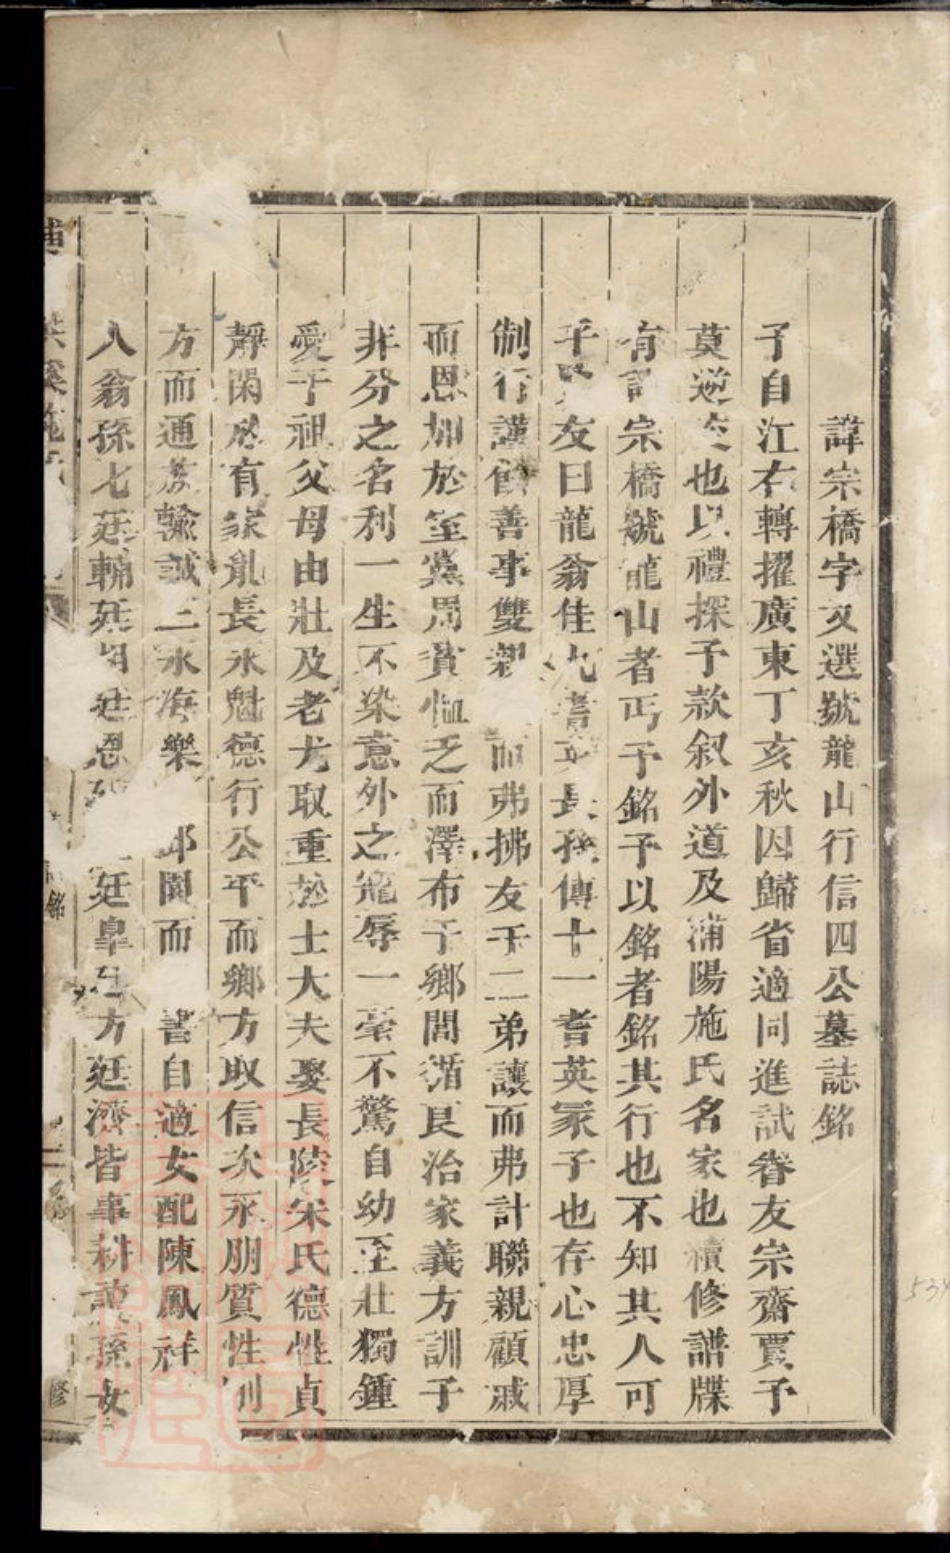 諱宗橋字文選號龍山行信四公墓誌銘
予自江右轉擢廣東丁亥秋因歸省適同進試眷友宗齋賈予
莫逆交也以禮探予款叙外道及浦陽施氏名家也續修譜牒
有諱宗橋號龍山者丐予銘予以銘者銘其行也不知其人可
乎友曰龍翁佳九耆英長孫傅十一耆英冢子也存心忠厚
制行謹善事雙親而弗拂友于二弟讓而弗計聯親顧戚
而恩加於室黨周貧恤乏而澤布于鄉閭循良治家義方訓子
非分之名利一生不染意外之寵辱一毫不驚自幼至壯獨鍾
愛于祖父母由壯及老尤取重於士大夫娶長陵宋氏德性貞
靜閑於有家胤長永魁德行公平而鄉方取信次永朋質性剛
方而通族輸誠三永海樂而書自適女配陳鳳祥
八翁孫七廷輔廷廷恩廷廷皐廷方廷濟皆事耕讀孫女
銘
修